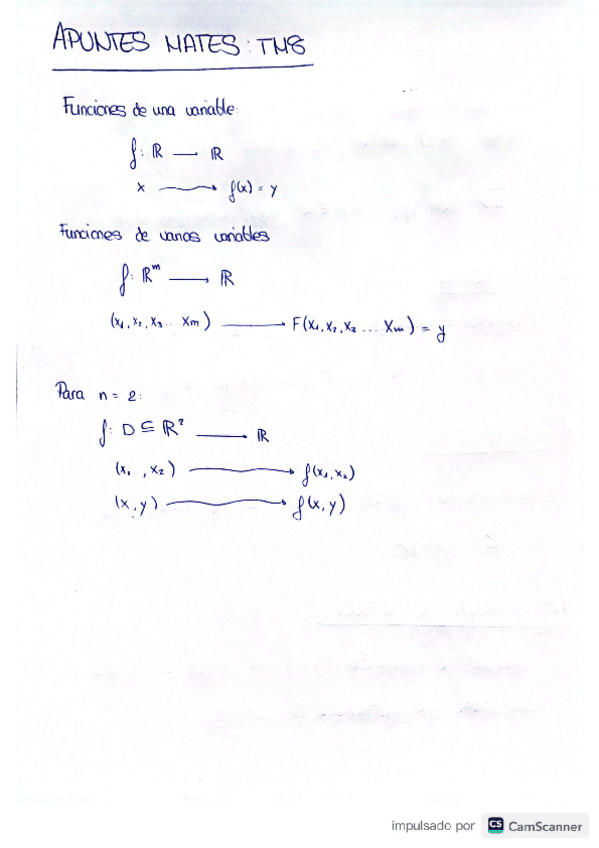 APUNTES MATES: TM8
Funciones de una variable:
f: ℝ — ℝ
x → f(x) = y
Funciones de varias variables
f: ℝᵐ — ℝ
(x₁, x₂, x₃... xm) → F(x₁, x₂, x₃ ... xm) = y
Para n = 2:
f: D ⊆ ℝ² — ℝ
(x₁, x₂) → f(x₁, x₂)
(x, y) → f(x, y)
impulsado por CS CamScanner